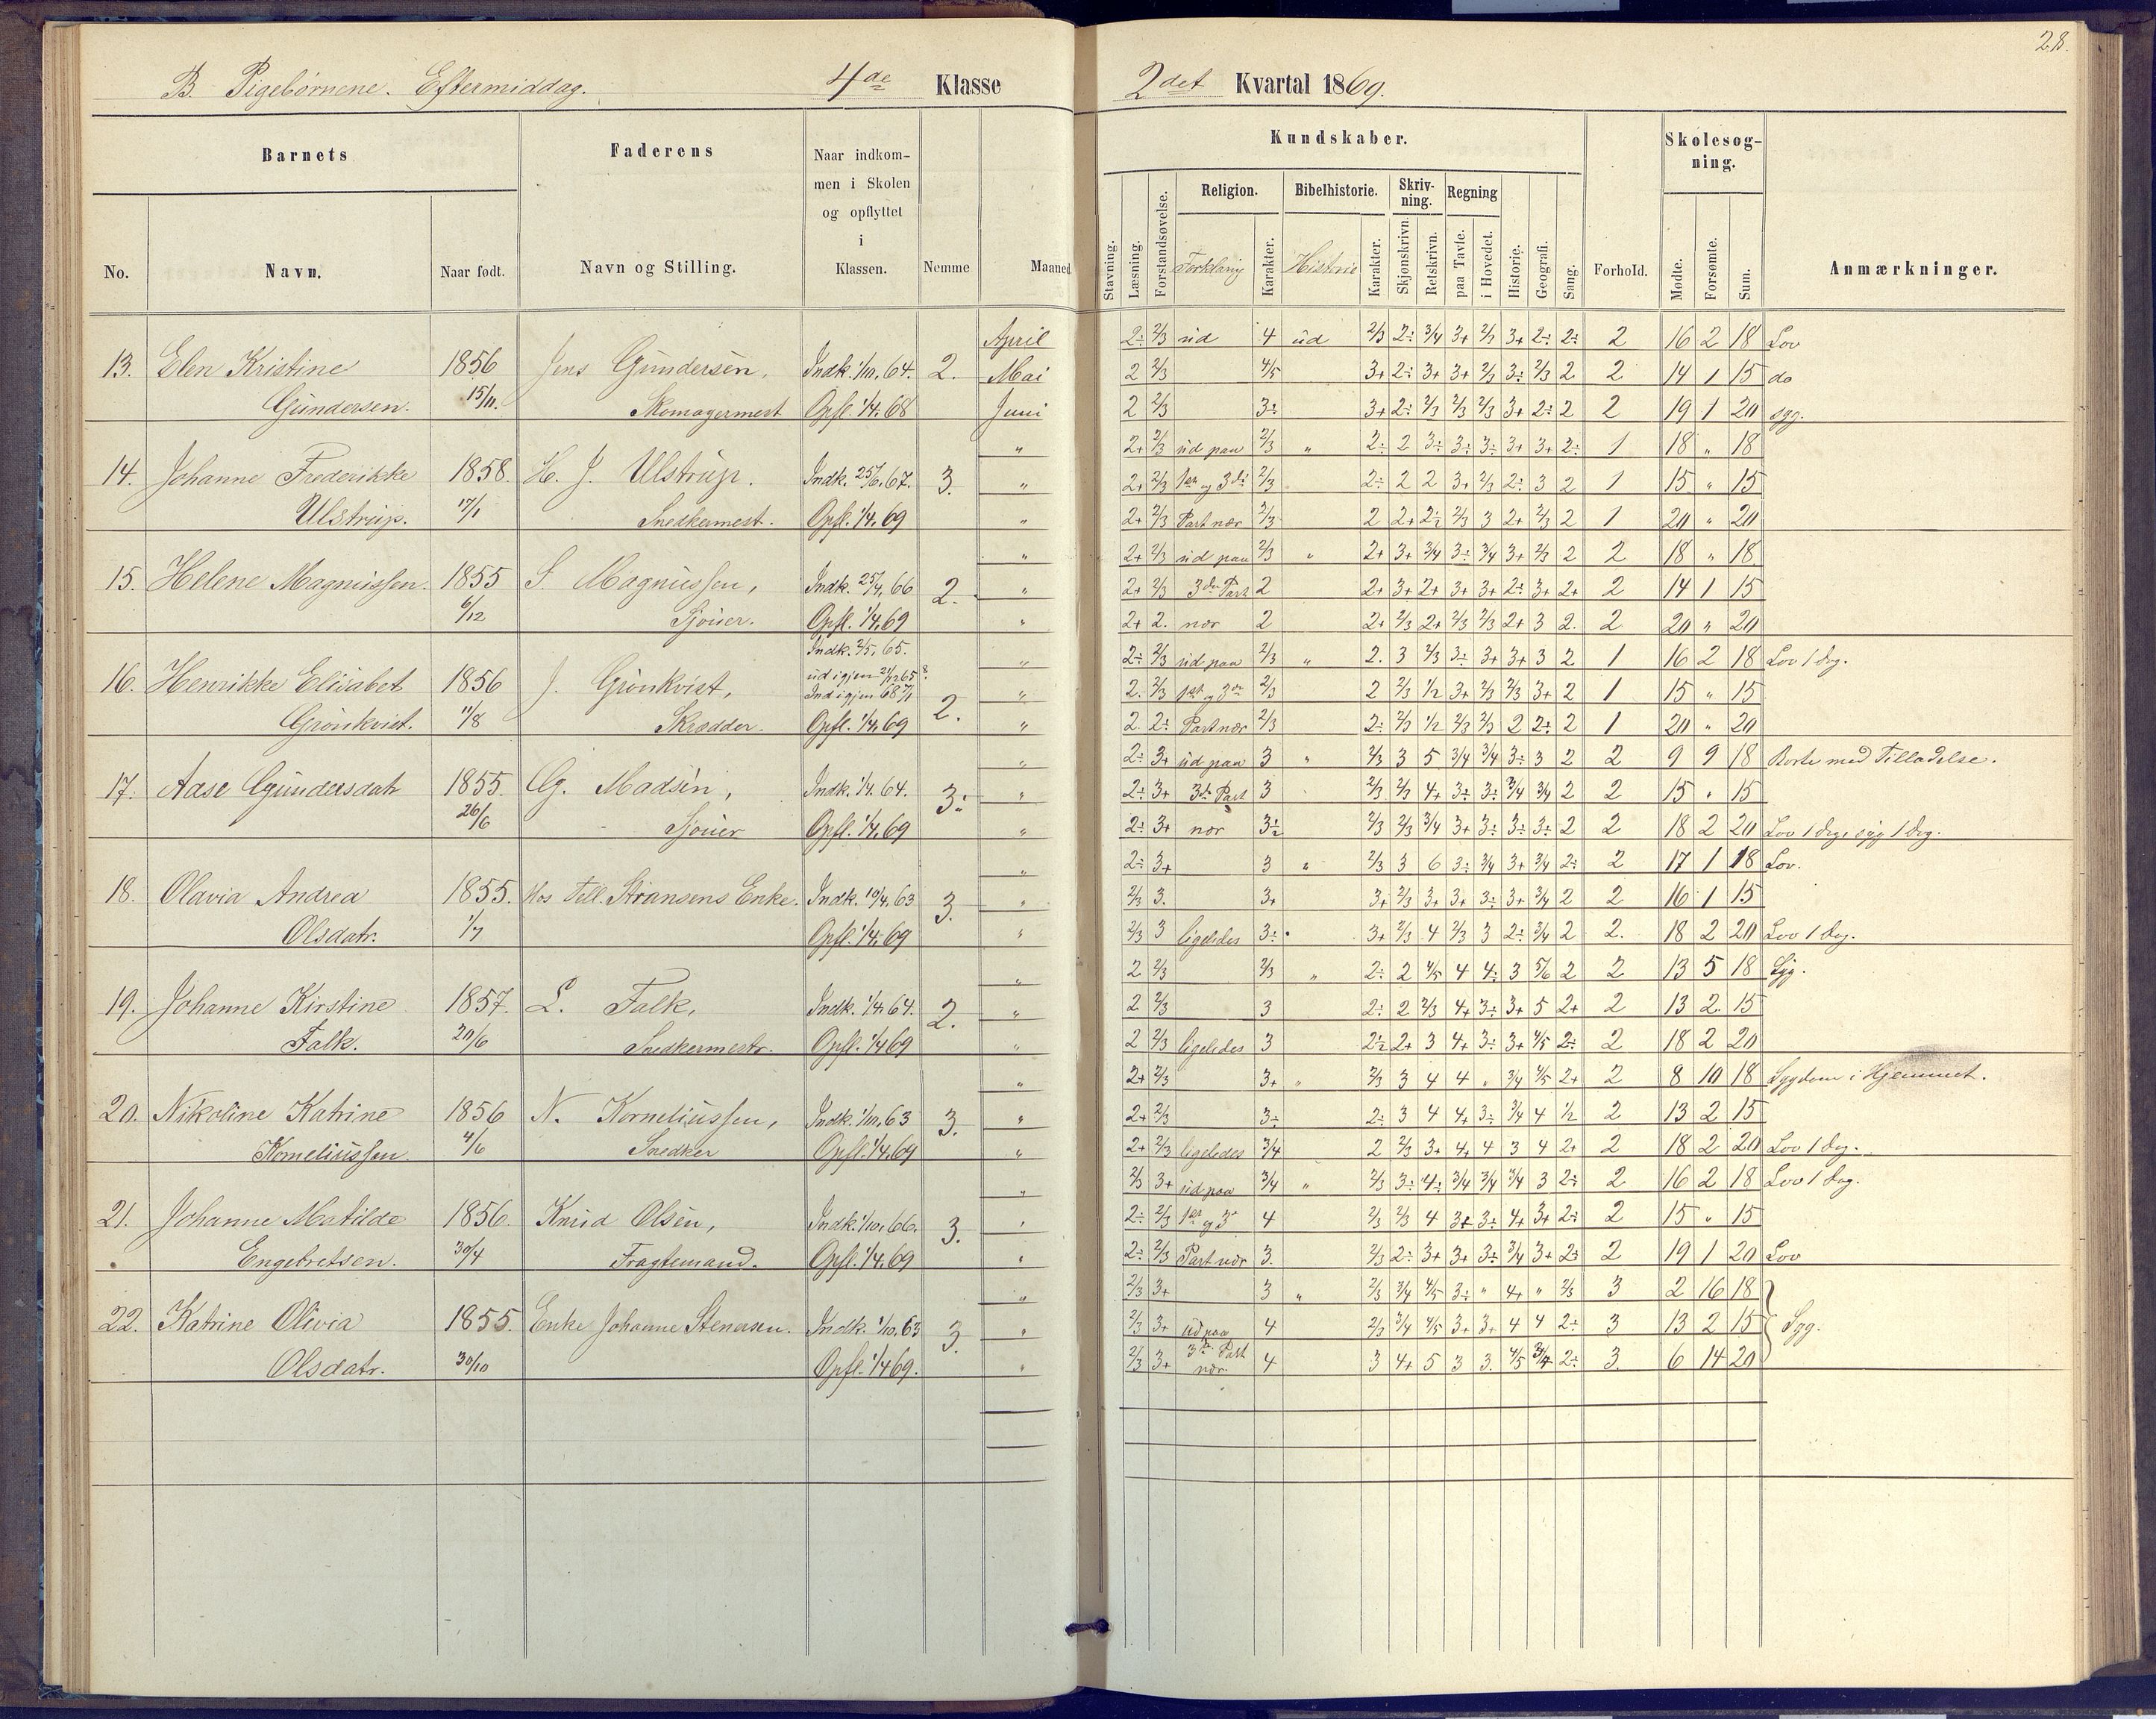 28.
B. Pigebørnene. Eftermiddag. 4de Klasse 2det Kvartal 1869.
Barnets Faderens Naar indkommen i Skolen og opflyttet i Klassen. Nemme Maaned
No. Navn. Naar født. Navn og Stilling.
Kundskaber. Forhold. Skolesøgning. Anmærkninger.
Stavning. Læsning. Forstandsøvelse. Religion. Forklaring Karakter. Bibelhistorie. Historie Karakter. Skrivning. Skjønskrivn. Retskrivn. Regning paa Tavle. i Hovedet. Historie. Geografi. Sang. Mødte. Forsømte. Sum.
April 2÷ 2/3 ud 4 ud 2/3 2÷ 3/4 3+ 2/3 3+ 2÷ 2÷ 2 16 2 18 Lov
13. Elen Kristine 1856 Jens Gundersen, Indk. 1/10. 64. 2. Mai 2 2/3 4/5 3+ 2÷ 3+ 3+ 2/3 3÷ 2/3 2 2 14 1 15 do
Gundersen. 15/11. Skomagermest Opfl. 1/4. 68 Juni 2 2/3 3÷ 3+ 2÷ 2/3 2/3 2/3 3+ 2÷ 2 2 19 1 20 syg.
" 2+ 2/3 ud paa 2/3 " 2÷ 2 3÷ 3÷ 3÷ 3+ 3+ 2÷ 1 18 " 18
14. Johanne Frederikke 1858. H. J. Ulstrup. Indk. 25/6. 67. 3. " 2+ 2/3 1ste og 3die 2/3 2÷ 2 2 3+ 2/3 2÷ 3 2 1 15 " 15
Ulstrup. 17/1 Snedkermest. Opfl. 1/4. 69 " 2+ 2/3 Part nær 2/3 2 2+ 2÷ 2/3 3 2+ 2/3 2 1 20 " 20
" 2+ 2/3 ud paa 2/3 " 2+ 3+ 3/4 3÷ 3/4 3+ 2/3 2 2 18 " 18
15. Helene Magnussen. 1855 S. Magnussen, Indk. 25/4. 66 2. " 2+ 2/3 3die Part 2 2+ 3+ 2+ 3+ 3+ 2÷ 3+ 2+ 2 14 1 15
6/12 Sjouer. Opfl. 1/4. 69 " 2+ 2. nær 2 2+ 2/3 2+ 2/3 2/3 2+ 3 2. 2 20 " 20
Indk. 2/5. 65. " 2÷ 2/3 ud paa 2/3 " 2. 3 2/3 3÷ 3+ 3+ 3 2 1 16 2 18 Lov 1 Dag.
16. Henrikke Elisabet 1856 J. Grönkvist, ud igjen 21/12 65 Ind igjen 68 7/1 2. " 2. 2/3 1ste og 3die 2/3 2 2/3 1/2 3+ 2/3 2/3 3+ 2 1 15 " 15
Grönkvist. 11/8 Skrædder. Opfl. 1/4. 69 " 2. 2÷ Part nær 2/3 2÷ 2/3 1/2 2/3 2/3 2 2÷ 2 1 20 " 20
" 2÷ 3+ ud paa 3 " 2/3 3 5 3/4 3/4 3÷ 3 2 2 9 9 18 Borte med Tilladelse.
17. Aase Gundersdatr 1855. G. Madsen, Indk. 1/4. 64. 3÷ " 2÷ 3+ 3die Part 3 2/3 2/3 4+ 3÷ 3÷ 3/4 3/4 2 2 15 " 15
26/6 Sjouer Opfl. 1/4. 69 " 2÷ 3+ nær 3÷ 2/3 2/3 3/4 3+ 3÷ 3÷ 3÷ 2 2 18 2 20 Lov 1 Dag, syg 1 Dag.
" 2÷ 3+ 3 " 2/3 3 6 3÷ 3/4 3+ 3/4 2÷ 2 17 1 18 Lov.
18. Olavia Andrea 1855. Hos Tell. Stransens Enke. Indk. 10/4. 63 3. " 2/3 3. 3+ 3+ 2/3 3+ 3+ 3÷ 3+ 3/4 2 2 16 1 15
Olsdatr. 1/7 Opfl. 1/4. 69 " 2/3 3 ligeledes 3÷ 3+ 2/3 4 2/3 3 2÷ 3/4 2 2. 18 2 20 Lov 1 Dag.
" 2 2/3 2/3 " 2÷ 2 4/5 4 4÷ 3 5/6 2 2 13 5 18 Syg.
19. Johanne Kirstine 1857. L. Falk, Indk. 1/4. 64. 2. " 2 2/3 3 2÷ 2 2/3 4+ 3÷ 3+ 5 2+ 2 13 2. 15
Falk. 20/6 Snedkermestr. Opfl. 1/4 69 " 2 2/3 ligeledes 3 2÷ 2+ 3 4+ 3÷ 3+ 4/5 2÷ 2 18 2 20
" 2+ 2/3 3+ " 2/3 3 4 4 " 3/4 4/5 2+ 2 8 10 18 Sygdom i Hjemmet.
20. Nikoline Katrine 1856 N. Korneliussen, Indk. 1/10. 63 3. " 2+ 2/3 3÷ 2÷ 3 4 4+ 3÷ 3/4 4 1/2 2 13 2 15
Korneliussen 4/6 Snedker Opfl. 1/4. 69 " 2+ 2/3 ligeledes 3/4 2 2/3 3+ 4+ 4 3 4 2+ 2 18 2 20 Lov 1 Dag.
" 2/3 3+ ud paa 3/4 " 2/3 3÷ 4÷ 3/4 3/4 3/4 3 2÷ 2 16 2 18 Lov 1 Dag.
21. Johanne Matilde 1856. Knud Olsen, Indk. 1/10. 66. 3. " 2÷ 2/3 1ste og 3die 4 2/3 2/3 4 3+ 3÷ 4+ 3+ 2÷ 2 15 " 15
Engebretsen. 30/4 Fragtemand. Opfl. 1/4. 69 " 2÷ 2/3 Part nær 3. 2/3 2÷ 3+ 3+ 3÷ 3/4 3+ 2÷ 2 19 1 20 Lov
" 2/3 3+ 3 " 2/3 3/4 4/5 3÷ " 4+ " 2/3 3 2 16 18
22. Katrine Olivia 1855. Enke Johanne Stenersen. Indk. 1/10. 63 3. " 2/3 3+ ud paa 4 2/3 3/4 4/5 3+ 3+ 4 4 2÷ 3 13 2 15 Syg.
Olsdatr. 30/10 Opfl. 1/4 69. " 2/3 3+ 3die Part nær 4 3 4+ 5 3 3. 4/5 3/4 2÷ 3. 6 14 20